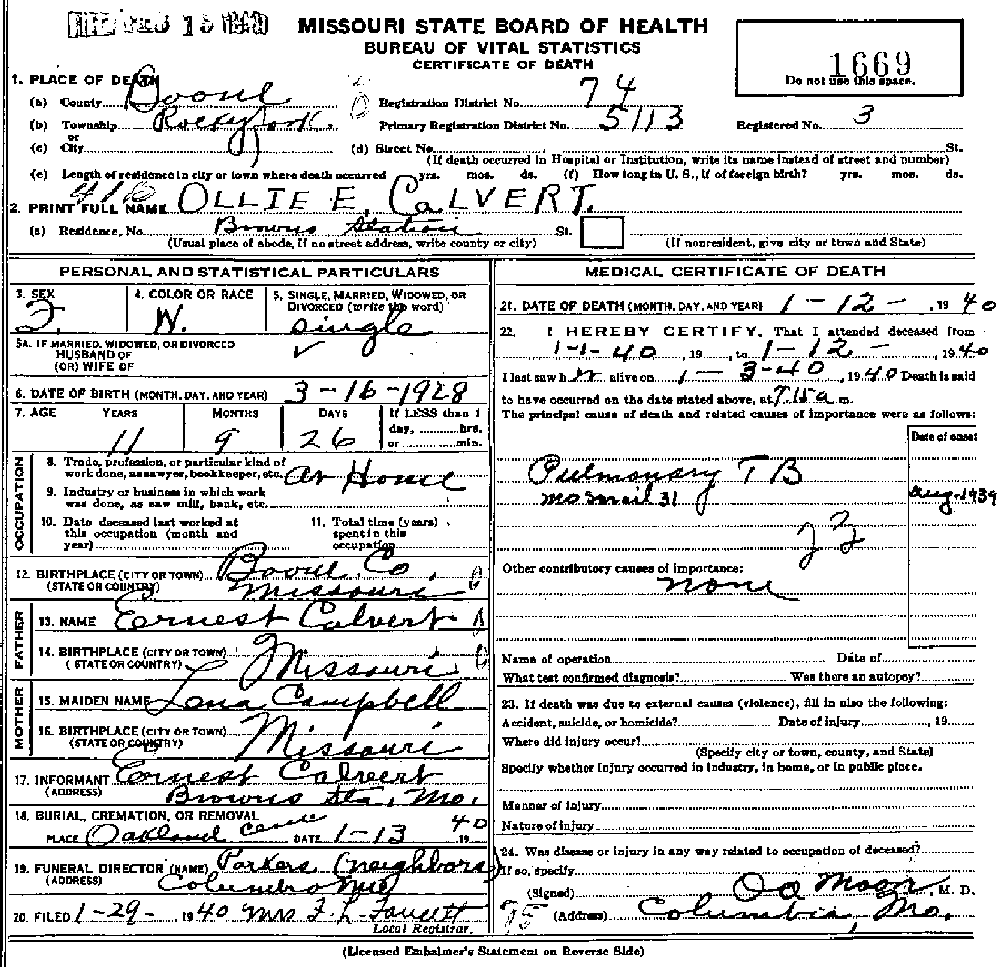 FEB 15 1940
MISSOURI STATE BOARD OF HEALTH
BUREAU OF VITAL STATISTICS
CERTIFICATE OF DEATH
1669
Do not use this space.
1. PLACE OF DEATH
(a) County Boone
Registration District No. 74
(b) Township Rockyfork.
Primary Registration District No. 5113
Registered No. 3
or
(c) City
(d) Street No. St.
(If death occurred in Hospital or Institution, write its name instead of street and number)
(e) Length of residence in city or town where death occurred yrs. mos. ds. (f) How long in U. S., if of foreign birth? yrs. mos. ds.
416
2. PRINT FULL NAME OLLIE E. CALVERT.
(a) Residence, No. Browns Station St.
(Usual place of abode, if no street address, write county or city)
(If nonresident, give city or town and State)
PERSONAL AND STATISTICAL PARTICULARS
3. SEX F.
4. COLOR OR RACE W.
5. SINGLE, MARRIED, WIDOWED, OR DIVORCED (write the word) single
5A. IF MARRIED, WIDOWED, OR DIVORCED
HUSBAND OF
(OR) WIFE OF
6. DATE OF BIRTH (MONTH, DAY, AND YEAR) 3-16-1928
7. AGE YEARS MONTHS DAYS If LESS than 1
day, hrs.
or min.
11 9 26
OCCUPATION
8. Trade, profession, or particular kind of
work done, as sawyer, bookkeeper, etc. At Home
9. Industry or business in which work
was done, as saw mill, bank, etc.
10. Date deceased last worked at
this occupation (month and
year)
11. Total time (years)
spent in this
occupation
12. BIRTHPLACE (CITY OR TOWN) Boone Co.
(STATE OR COUNTRY) Missouri
FATHER
13. NAME Ernest Calvert
14. BIRTHPLACE (CITY OR TOWN)
(STATE OR COUNTRY) Missouri
MOTHER
15. MAIDEN NAME Lena Campbell
16. BIRTHPLACE (CITY OR TOWN)
(STATE OR COUNTRY) Missouri
17. INFORMANT Ernest Calvert
(ADDRESS) Browns Sta, Mo.
18. BURIAL, CREMATION, OR REMOVAL
PLACE Oakland Cem DATE 1-13 1940
19. FUNERAL DIRECTOR (NAME) Parkers (neighbors)
(ADDRESS) Columbia Mo
20. FILED 1-29- 1940 Mrs F. L. Faucett
Local Registrar.
MEDICAL CERTIFICATE OF DEATH
21. DATE OF DEATH (MONTH, DAY, AND YEAR) 1-12- , 1940
22. I HEREBY CERTIFY, That I attended deceased from
1-1-40, 19 , to 1-12-, 1940
I last saw h er alive on 1-3-40, 1940 Death is said
to have occurred on the date stated above, at 7:15 a m.
The principal cause of death and related causes of importance were as follows:
Date of onset
Pulmonary T B
Aug. 1939
Other contributory causes of importance:
none
Name of operation Date of
What test confirmed diagnosis? Was there an autopsy?
23. If death was due to external causes (violence), fill in also the following:
Accident, suicide, or homicide? Date of injury , 19
Where did injury occur?
(Specify city or town, county, and State)
Specify whether injury occurred in industry, in home, or in public place.
Manner of injury
Nature of injury
24. Was disease or injury in any way related to occupation of deceased?
If so, specify
(Signed) M. D.
75 (Address) Columbia, Mo.
(Licensed Embalmer's Statement on Reverse Side)